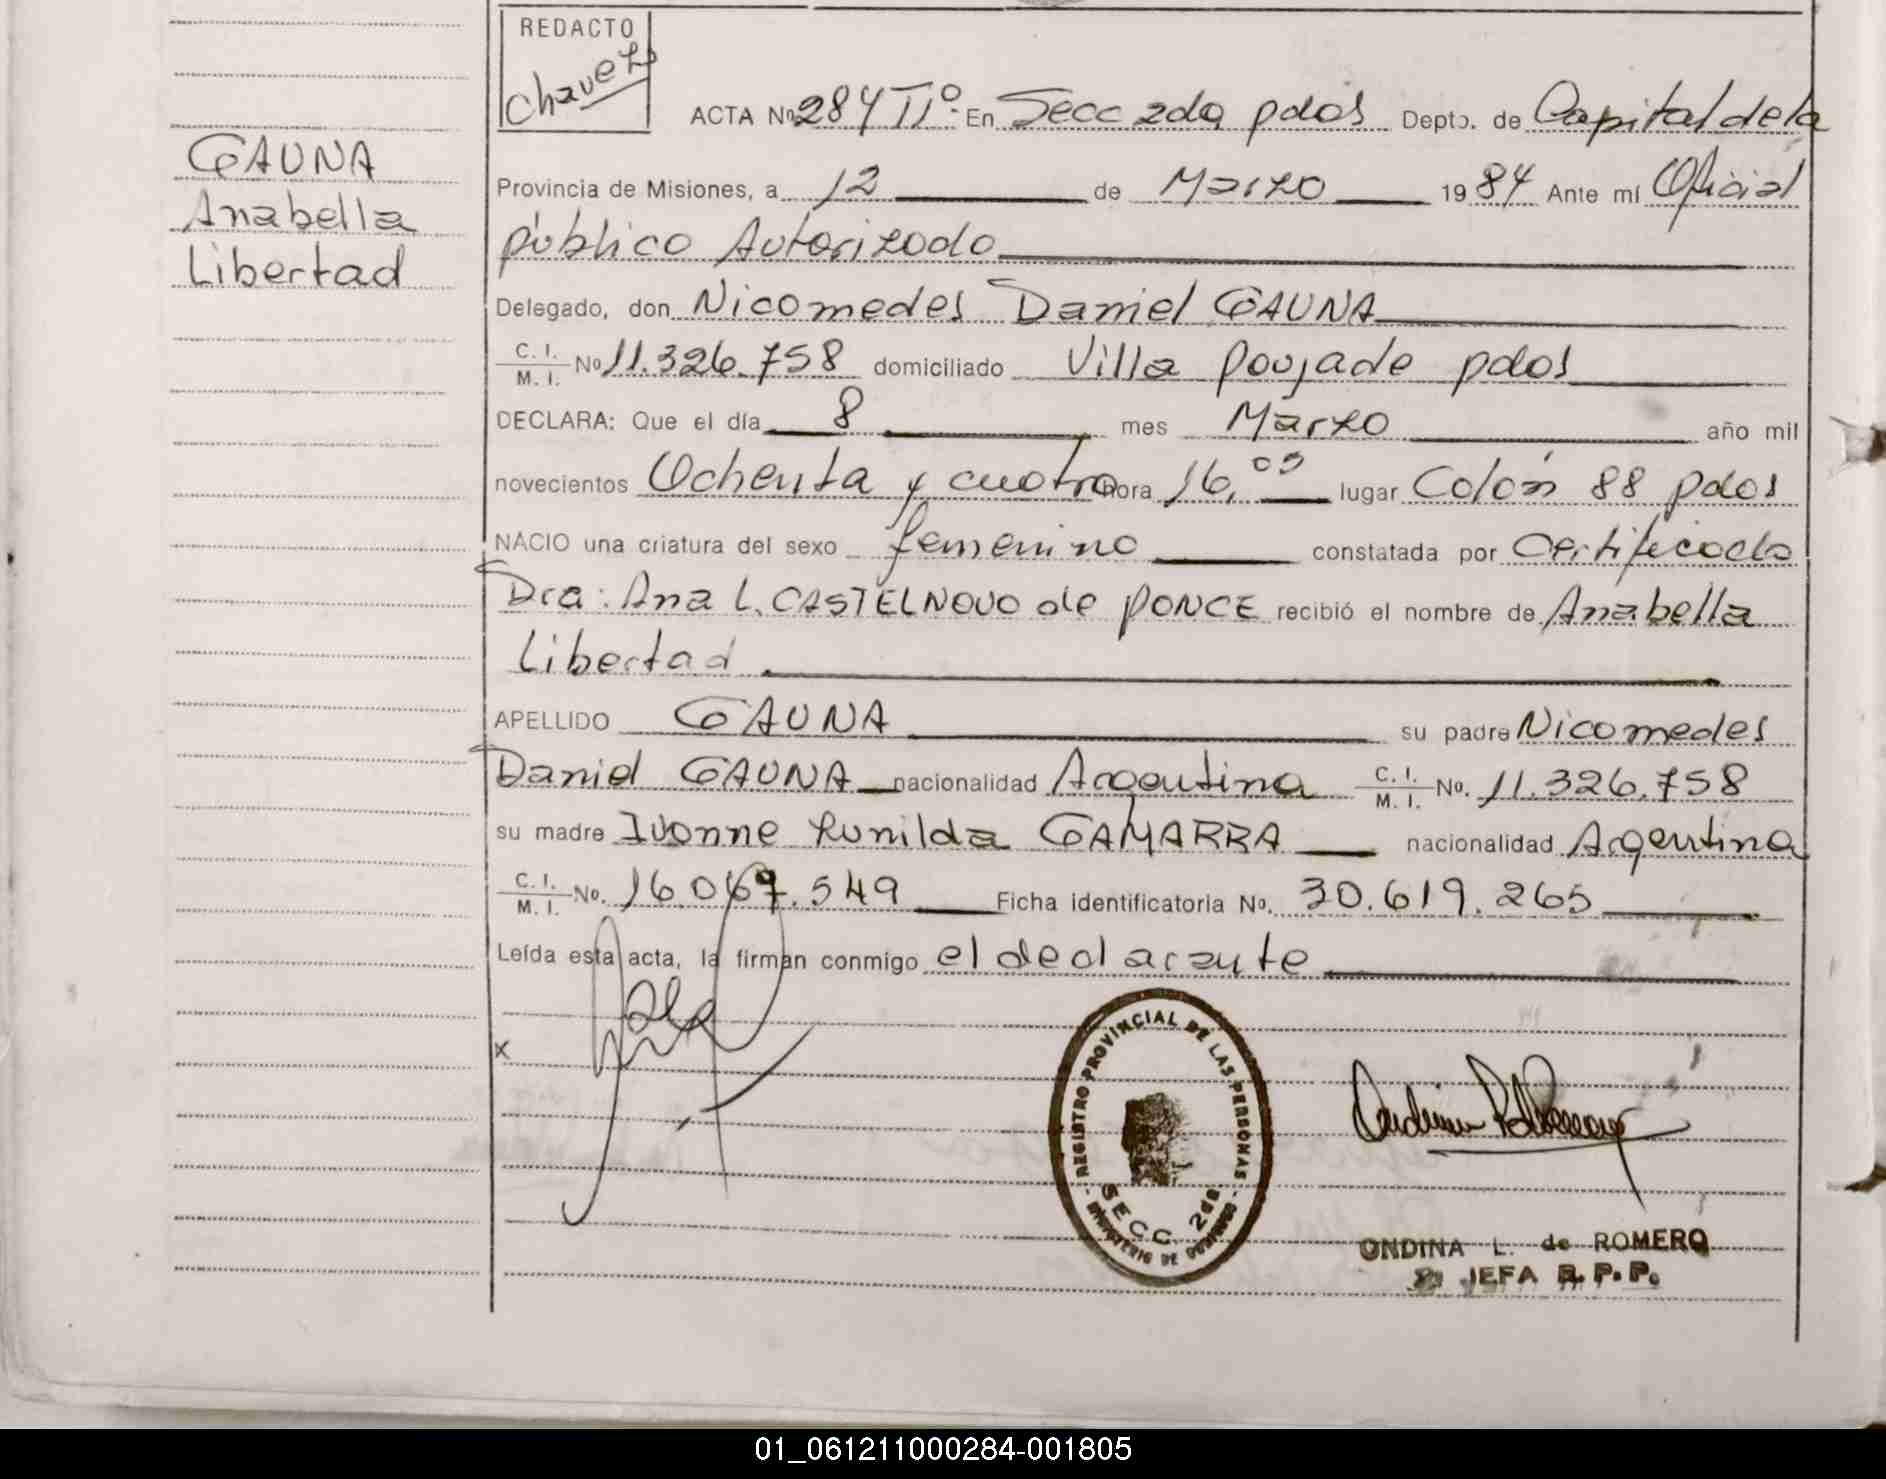 REDACTO
Chavez
ACTA Nº 284 IIº En Secc 2da pdas Depto. de Capital de la
GAUNA
Anabella
Libertad
Provincia de Misiones, a 12 de Marzo 1984 Ante mí Oficial
público Autorizado
Delegado, don Nicomedes Daniel GAUNA
C. I.
M. I. Nº 11.326.758 domiciliado Villa Poujade pdas
DECLARA: Que el día 8 mes Marzo año mil
novecientos Ochenta y cuatro hora 16,05 lugar Colón 88 pdas
NACIO una criatura del sexo femenino constatada por Certificado
Dra: Ana L. CASTELNOVO de PONCE recibió el nombre de Anabella
Libertad
APELLIDO GAUNA su padre Nicomedes
Daniel GAUNA nacionalidad Argentina C. I. M. I. Nº. 11.326.758
su madre Ivonne Runilda GAMARRA nacionalidad Argentina
C. I.
M. I. Nº. 16.067.549 Ficha identificatoria Nº. 30.619.265
Leída esta acta, la firman conmigo el declarante
x
REGISTRO PROVINCIAL DE LAS PERSONAS
SECC. 2da
MINISTERIO DE GOBIERNO
ONDINA L. de ROMERO
JEFA R. P. P.
01_061211000284-001805